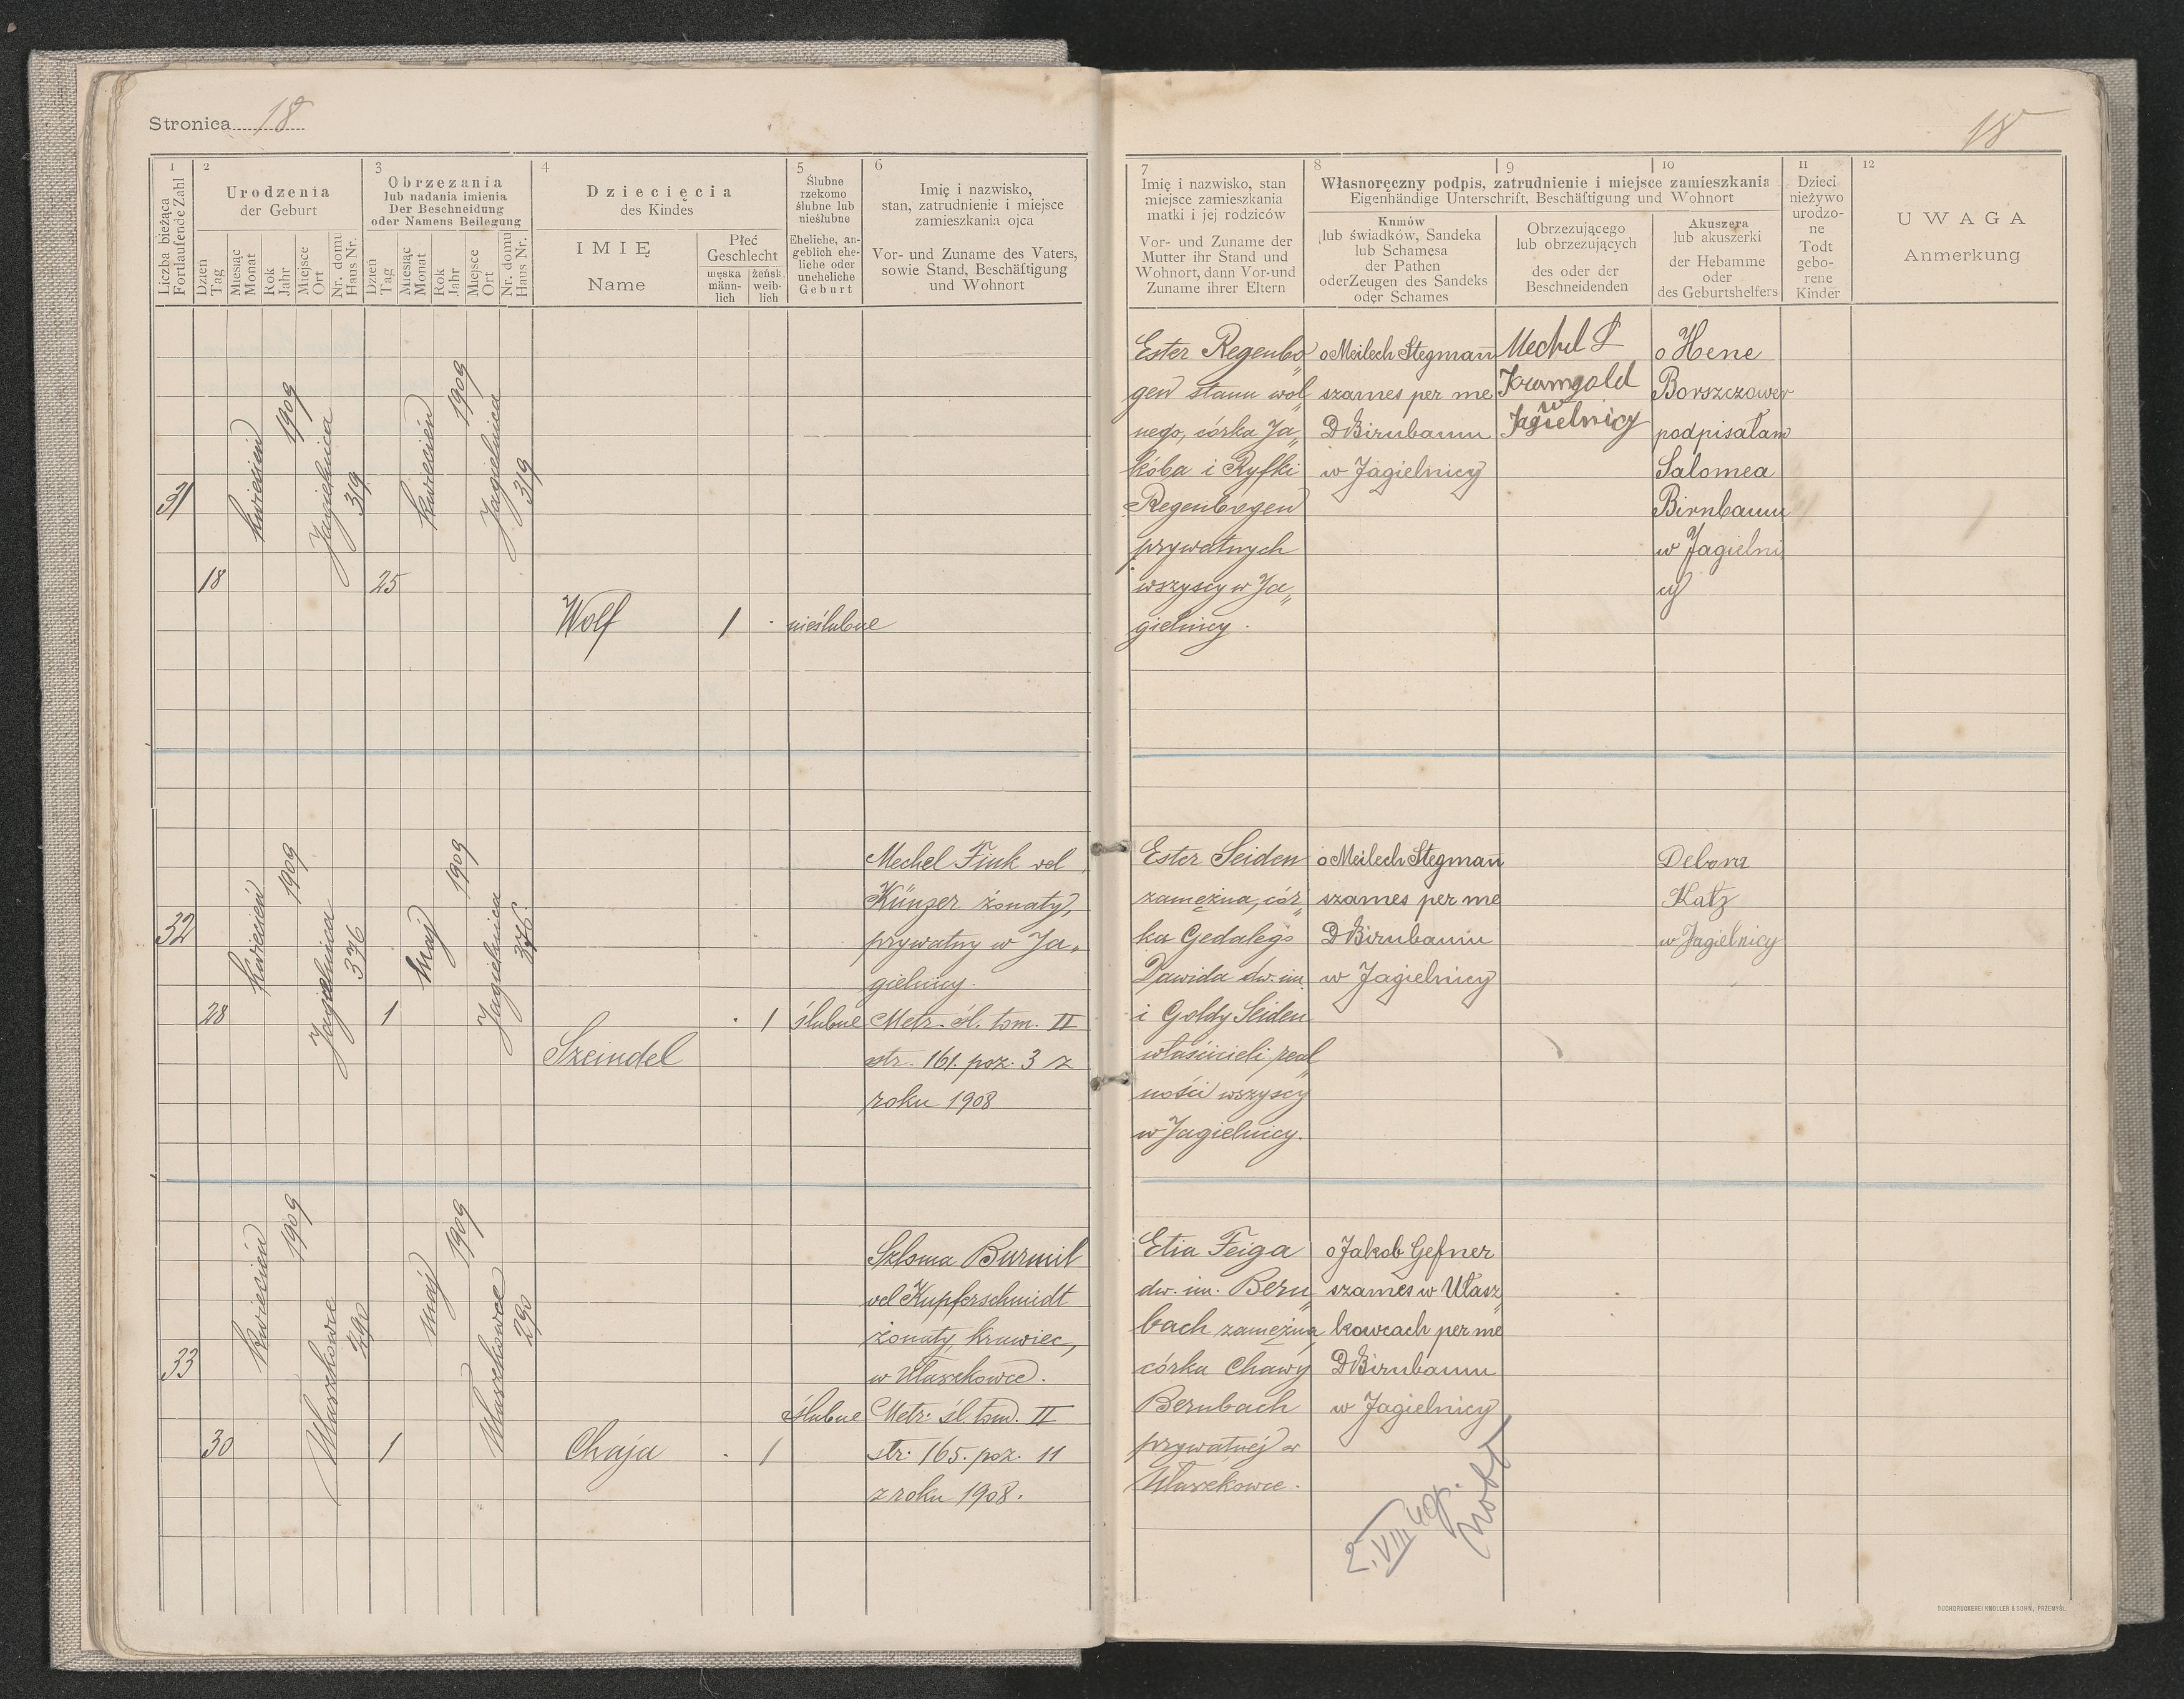 Stronica 18
18
1
Liczba bieżąca
Fortlaufende Zahl
2
Urodzenia
der Geburt
Dzień
Tag
Miesiąc
Monat
Rok
Jahr
Miejsce
Ort
Nr. domu
Haus Nr.
3
Obrzezania
lub nadania imienia
Der Beschneidung
oder Namens Beilegung
Dzień
Tag
Miesiąc
Monat
Rok
Jahr
Miejsce
Ort
Nr. domu
Haus Nr.
4
Dziecięcia
des Kindes
IMIĘ
Name
Płeć
Geschlecht
męska
männ-
lich
żeńsk.
weib-
lich
5
Ślubne
rzekomo
ślubne lub
nieślubne
Eheliche, an-
geblich ehe-
liche oder
uneheliche
Geburt
6
Imię i nazwisko,
stan, zatrudnienie i miejsce
zamieszkania ojca
Vor- und Zuname des Vaters,
sowie Stand, Beschäftigung
und Wohnort
7
Imię i nazwisko, stan
miejsce zamieszkania
matki i jej rodziców
Vor- und Zuname der
Mutter ihr Stand und
Wohnort, dann Vor-und
Zuname ihrer Eltern
8
9
10
Własnoręczny podpis, zatrudnienie i miejsce zamieszkania
Eigenhändige Unterschrift, Beschäftigung und Wohnort
Kumów
lub świadków, Sandeka
lub Schamesa
der Pathen
oder Zeugen des Sandeks
oder Schames
Obrzezującego
lub obrzezujących
des oder der
Beschneidenden
Akuszera
lub akuszerki
der Hebamme
oder
des Geburtshelfers
11
Dzieci
nieżywo
urodzo-
ne
Todt
gebo-
rene
Kinder
12
UWAGA
Anmerkung
31
18
kwiecień
1909
Jagielnica
319
25
kwiecień
1909
Jagielnica
319
Wolf
1
·
nieślubne
Ester Regenbo„
gen stanu wol„
nego, córka Ja„
kóba i Ryfki
Regenbogen
prywatnych
wszyscy w Ja„
gielnicy.
o Meilech Stegman
szames per me
DBirnbaum
w Jagielnicy
Mechel
Kramgold
w
Jagielnicy
o Hene
Borszczower
podpisałam
Salomea
Birnbaum
w Jagielni
cy
32
28
kwiecień
1909
Jagielnica
376
1
maj
1909
Jagielnica
376.
Szeindel
·
1
ślubne
Mechel Fink vel
Künzer żonaty,
prywatny w Ja„
gielnicy.
Metr. śl. tom. II
str. 161. poz. 3 z
roku 1908
Ester Seiden
zamężna, cór„
ka Gedalego
Dawida dw. im.
i Goldy Seiden
właścicieli real„
ności wszyscy
w Jagielnicy.
o Meilech Stegman
szames per me
DBirnbaum
w Jagielnicy
Debora
Katz
w Jagielnicy
33
30
kwiecień
1909
Ułaszkowce
290
1
maj
1909
Ułaszkowce
290
Chaja
·
1
ślubne
Szloma Burmil
vel Kupferschmidt
żonaty, krawiec,
w Ułaszkowce.
Metr. śl. tom. II
str. 165. poz. 11
z roku 1908.
Etia Feiga
dw. im. Bern„
bach zamężna,
córka Chawy
Bernbach
prywatnej w
Ułaszkowce.
o Jakob Gefner
szames w Ułasz„
kowcach per me
DBirnbaum
w Jagielnicy
2. VIII
BUCHDRUCKEREI KNOLLER & SOHN, PRZEMYŚL.